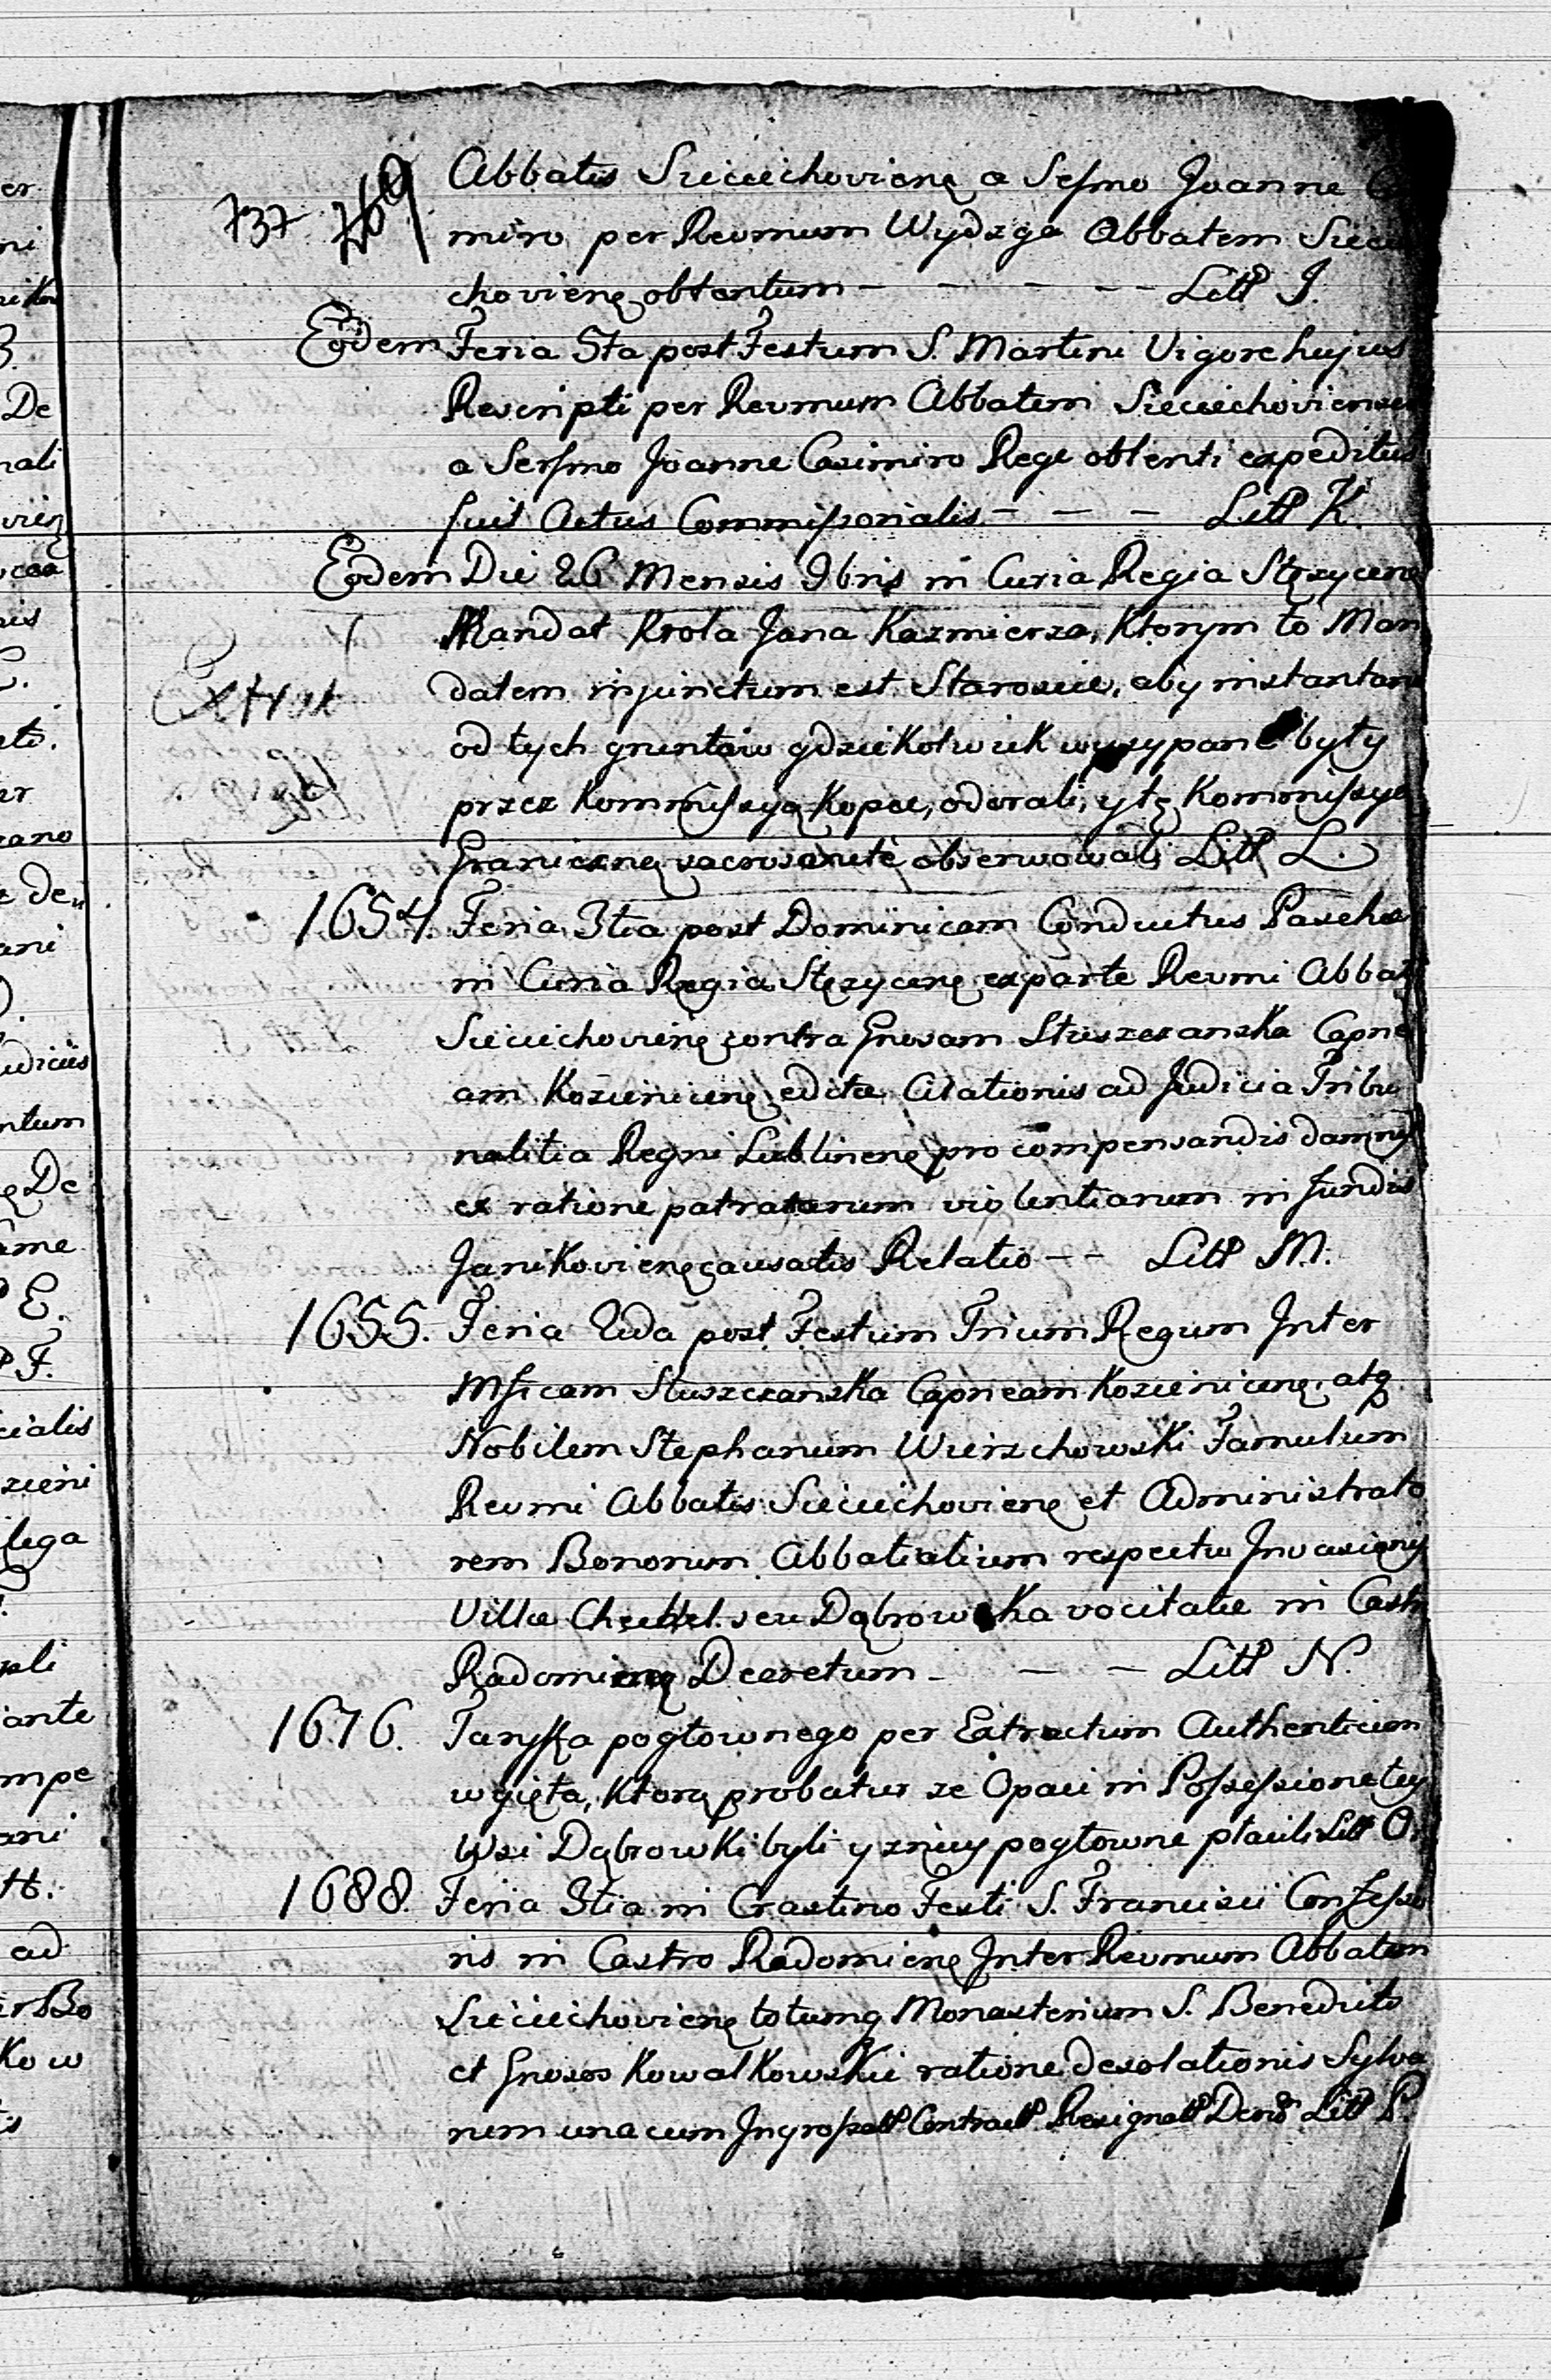 737 769
Abbatis Sieciechoviens. a Sermo Joanne
miro per Revmum Wydzga Abbatem Siecie
choviens. obtentum — — — — Litt. J.
Eodem Feria 5ta post Festum S. Martini Vigore hujus
Rescripti per Revmum Abbatem Sieciechoviensem
a Sermo Joanne Casimiro Rege obtenti expeditus
fuit Actus Commissorialis — — — Litt. K.
Eodem Die 26 Mensis 9bris in Curia Regia Stężycens.
Mandat Krola Jana Kazmierza, Ktorym to Man
datem injunctum est Staroscie, aby instantane
od tych gruntow gdziekolwiek wysypane były
przez Kommissyą Kopce, odorali, y tę Kommissyą
Graniczną sacrosancte obserwowali Litt. L.
1654. Feria 3tia post Dominicam Conductus Paschae
in Curia Regia Stężycens. ex parte Revmi Abbat
Sieciechoviens. contra Gnosam Słuszczanska Capne
am Kozieniciens. editae Citationis ad Judicia Tribu
nalitia Regni Lublinens. pro compensandis damnis
ex ratione patratarum violentiarum in fundis
Janikoviens. causatis Relatio — — Litt. M.
1655. Feria 2da post Festum Trium Regum Inter
Mficam Słuszczanska Capneam Kozieniciens. atq.
Nobilem Stephanum Wierzchowski Famulum
Revmi Abbatis Sieciechoviens. et Administrato
rem Bonorum Abbatialium respectu Invasionis
Villae seu Dąbrowka vocitatae in Castr
Radomiens. Decretum — — — Litt. N.
1676. Taryffa pogłownego per Extractum Authenticum
wyjęta, Ktorą probatur ze Opaci in Possessione tey
Wsi Dąbrowki byli y zniey pogłowne płacili Litt. O.
1688. Feria 3tia in Crastino Festi S. Francisci Confesso
ris in Castro Radomiens. Inter Revmum Abbatem
Sieciechoviens. totumq. Monasterium S. Benedicti
et Gnosos Kowalkowskie ratione desolationis Sylva
rum una cum Ingrossatt. Contractt. Resignatt. Litt. P.